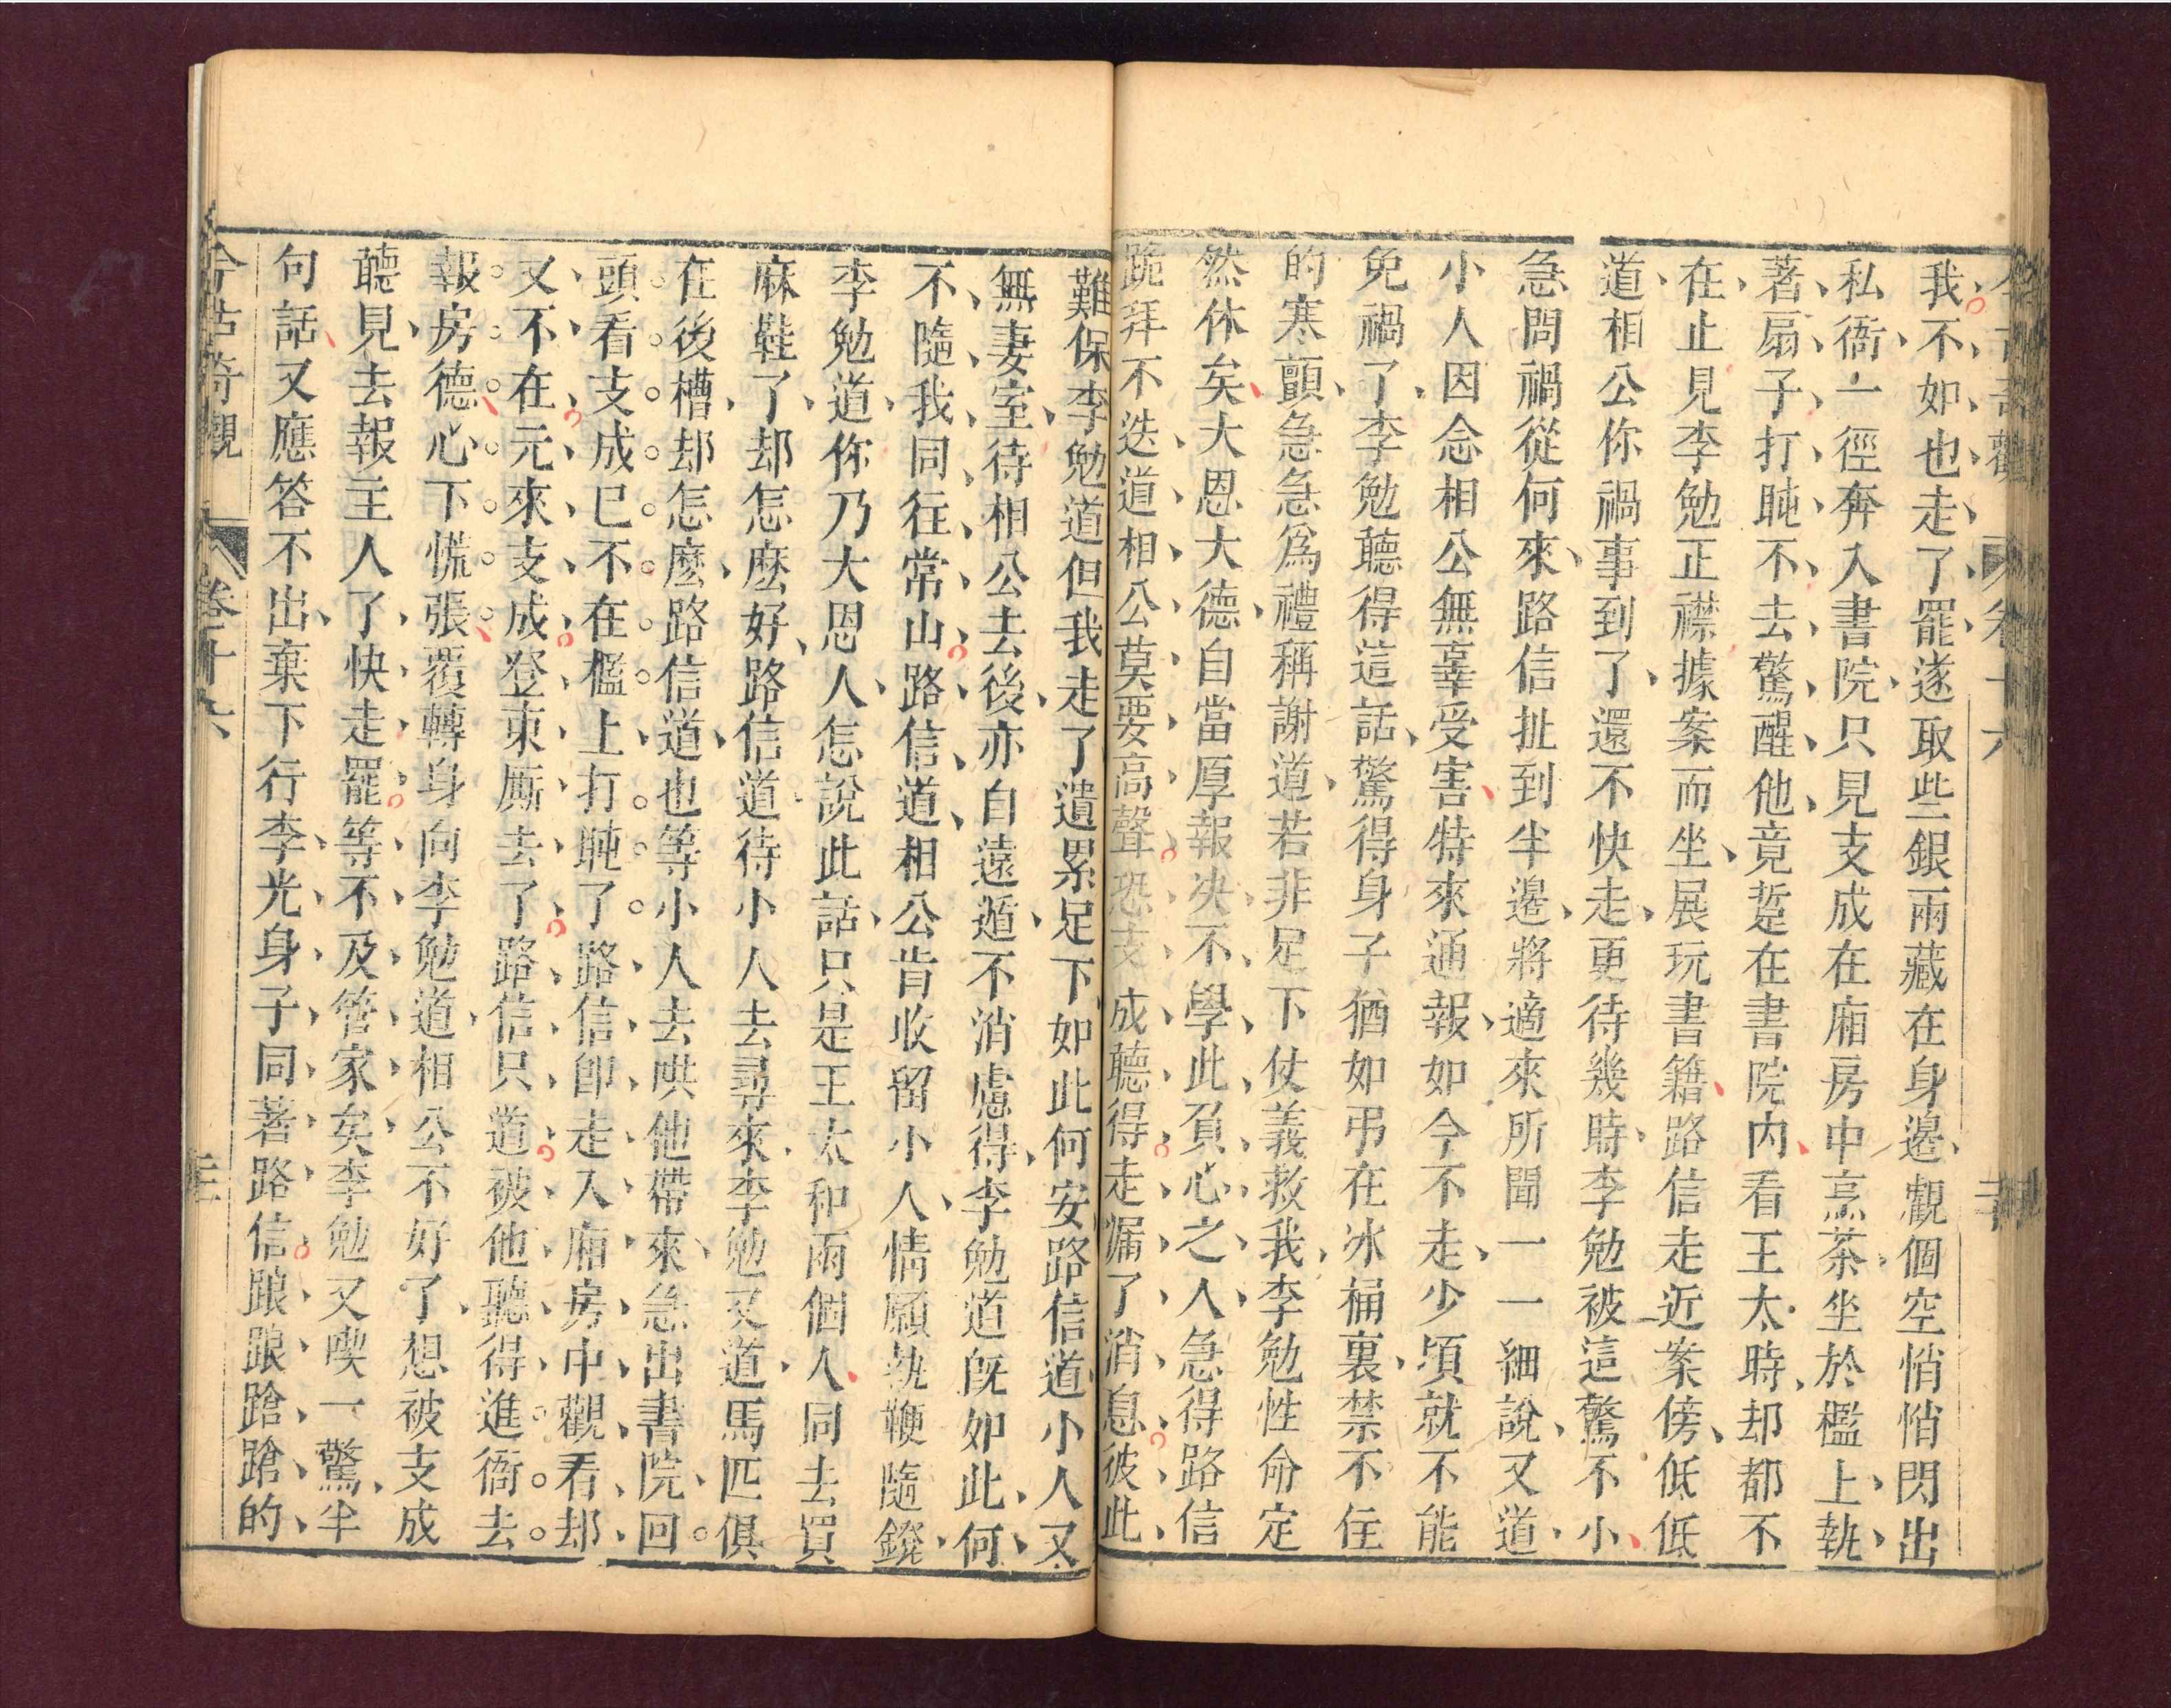 今古奇觀 卷十六 二十
我不如也走了罷遂取些銀兩藏在身邊觀個空悄悄閃出
私衙一徑奔入書院只見支成在廂房中烹茶坐於檻上執
著扇子打盹不去驚醒他竟踅在書院內看王太時却都不
在止見李勉正襟據案而坐展玩書籍路信走近案傍低低
道相公你禍事到了還不快走更待幾時李勉被這驚不小
急問禍從何來路信扯到半邊將適來所聞一一細說又道
小人因念相公無辜受害特來通報如今不走少頃就不能
免禍了李勉聽得這話驚得身子猶如弔在冰桶裏禁不住
的寒顫急急爲禮稱謝道若非足下仗義救我李勉性命定
然休矣大恩大德自當厚報决不學此負心之人急得路信
跪拜不迭道相公莫要高聲恐支成聽得走漏了消息彼此
難保李勉道但我走了遺累足下如此何安路信道小人又
無妻室待相公去後亦自遠遁不消慮得李勉道旣如此何
不隨我同往常山路信道相公肯收留小人情願執鞭隨鐙
李勉道你乃大恩人怎說此話只是王太和兩個人同去買
麻鞋了却怎麽好路信道待小人去尋來李勉又道馬匹俱
在後槽却怎麽路信道也等小人去哄他帶來急出書院回
頭看支成已不在檻上打盹了路信卽走入廂房中觀看却
又不在元來支成登東厮去了路信只道被他聽得進衙去
報房德心下慌張覆轉身向李勉道相公不好了想被支成
聽見去報主人了快走罷等不及管家矣李勉又喫一驚半
句話又應答不出棄下行李光身子同著路信踉踉蹌蹌的
今古奇觀 卷十六